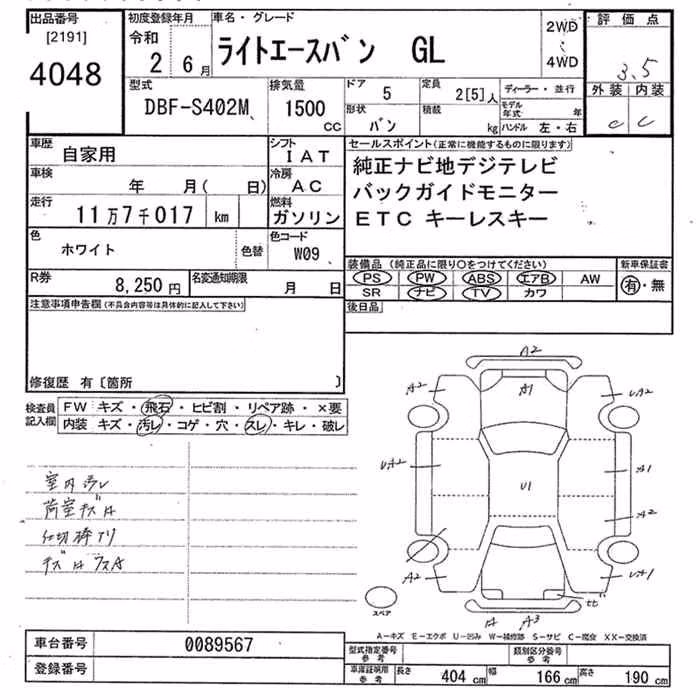 出品番号 初度登録年月 車名・グレード 2WD 評価点
[2191] 令和 ライトエースバン GL
4048 2 6月 4WD 3.5
型式 排気量 ドア 5 定員 2[5]人 ディーラー・並行 外装 内装
DBF-S402M 1500 CC 形状 バン 積載 kg モデル年式 年 C C
ハンドル 左・右
車歴 自家用 シフト IAT セールスポイント(正常に機能するものに限ります)
車検 年 月( 日) 冷房 AC 純正ナビ地デジテレビ
走行 11万7千017 km 燃料 ガソリン バックガイドモニター
色 ホワイト 色替 色コード W09 ETC キーレスキー
R券 8,250円 名変通知期限 月 日 装備品(純正品に限り〇をつけてください) 新車保証書
PS PW ABS エアB AW 有・無
SR ナビ TV カワ
注意事項申告欄(不具合内容等は具体的に記入して下さい) 後日品
修復歴 有〔箇所 〕
検査員記入欄 FW キズ・飛石・ヒビ割・リペア跡・×要
内装 キズ・汚レ・コゲ・穴・スレ・キレ・破レ
室内汚レ
荷室キズA
仕切棒アリ
キズAウスA
A2
A2 A1 UA2
UA2 U1 A1
A2
A2 UA1
A A3
スペア
A-キズ E-エクボ U-凹み W-補修跡 S-サビ C-腐食 XX-交換済
車台番号 0089567 型式指定番号 参考 類別区分番号 参考
登録番号 車庫証明用 参考 長さ 404 cm 幅 166 cm 高さ 190 cm